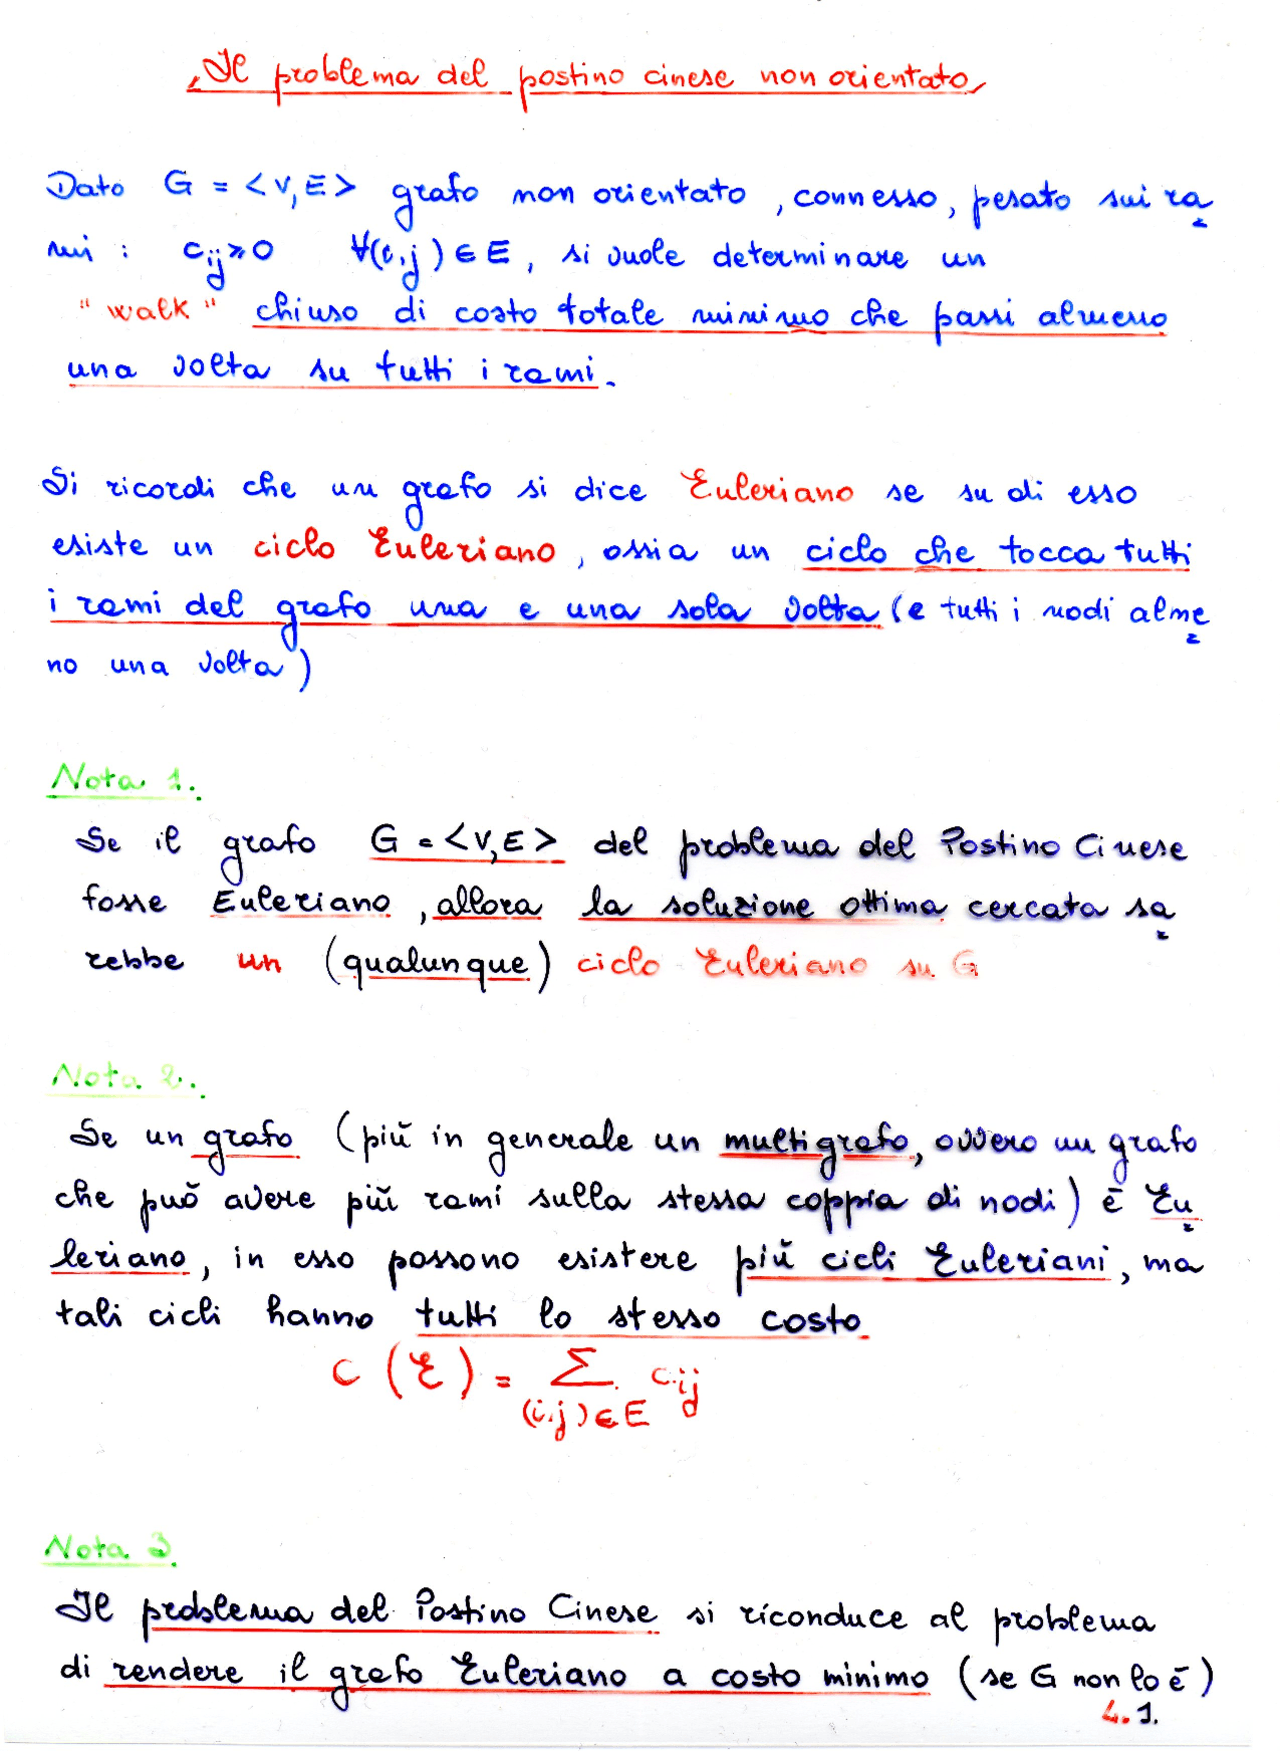 Il problema del postino cinese non orientato
Dato G = <V, E> grafo non orientato, connesso, pesato sui ra
mi : cij ≥ 0 ∀(i,j) ∈ E, si vuole determinare un
"walk" chiuso di costo totale minimo che passi almeno
una volta su tutti i rami.
Si ricordi che un grafo si dice Euleriano se su di esso
esiste un ciclo Euleriano, ossia un ciclo che tocca tutti
i rami del grafo una e una sola volta (e tutti i nodi alme
no una volta)
Nota 1.
Se il grafo G = <V, E> del problema del Postino Cinese
fosse Euleriano, allora la soluzione ottima cercata sa
rebbe un (qualunque) ciclo Euleriano su G
Nota 2.
Se un grafo (più in generale un multigrafo, ovvero un grafo
che può avere più rami sulla stessa coppia di nodi) è Eu
leriano, in esso possono esistere più cicli Euleriani, ma
tali cicli hanno tutti lo stesso costo
C (ℰ) = Σ cij
(i,j) ∈ E
Nota 3
Il problema del Postino Cinese si riconduce al problema
di rendere il grafo Euleriano a costo minimo (se G non lo è)
4.1.